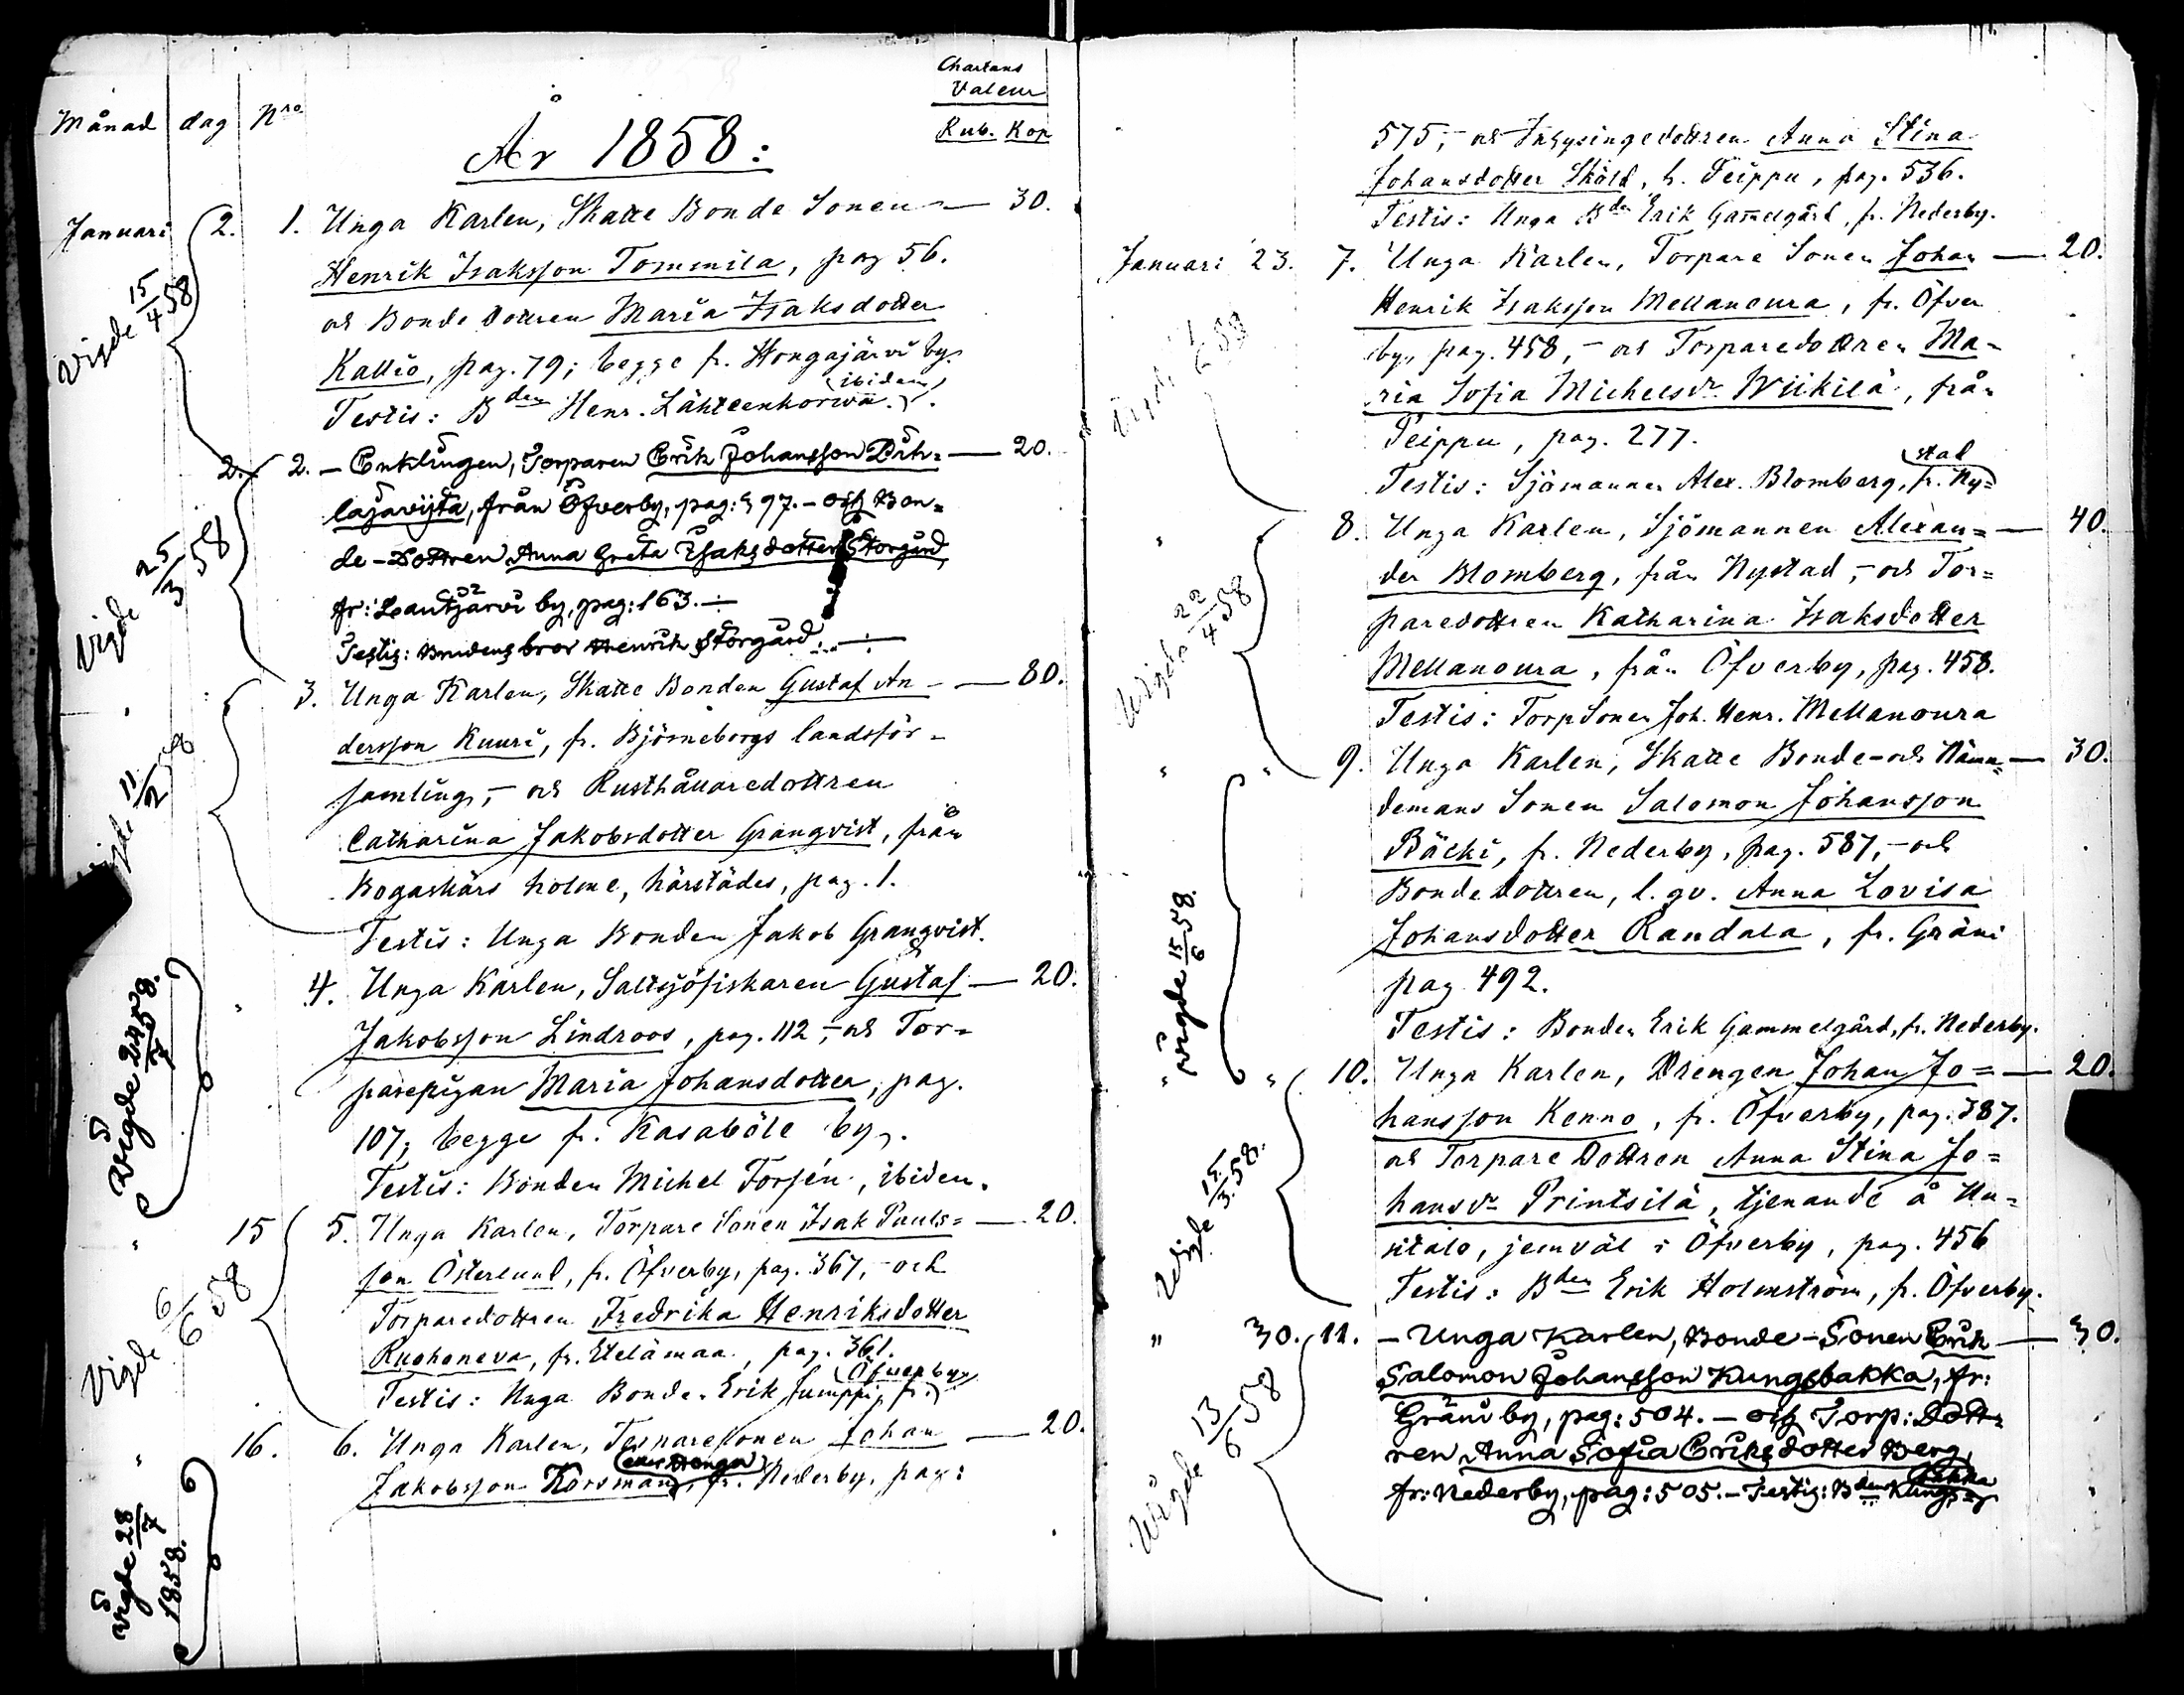 Chartans
Valeur
Månad dag Nro
Rub. Kop
År 1858:
Januari 2. 1. Unga Karlen, Skatte Bonde Sonen — 30.
Henrik Isaksson Tommila, pag 56.
och Bonde Dottren Maria Isaksdotter
Kallio, pag. 79; begge fr. Hongajärvi by.
(ibidem)
Testis: Bden Henr. Lähteenkorwa.
Vigde 15/4 58
2. 2. – Enklingen, Torparen Erik Johansson Pih= — 20.
lajaviita, från Öfverby, pag: 397. – och Bon=
de-Dottren Anna Greta Isaksdotter Storgård
fr: Lautjärvi by, pag: 163. –
Testis: Brudens bror Henrik Storgård.
Vigde 25/3 58
" 3. Unga Karlen, Skatte Bonden Gustaf An- — 80.
dersson Kuuri, fr. Björneborgs landsför-
samling, – och Rusthållaredottren
Catharina Jakobsdotter Granqvist, från
Bogaskärs holme, härstädes, pag. 1.
Testis: Unga Bonden Jakob Granqvist.
Vigde 11/2 58
" 4. Unga Karlen, Saltsjöfiskaren Gustaf — 20.
Jakobsson Lindroos, pag. 112, – och Tor=
parepigan Maria Johansdotter, pag.
107; begge fr. Kasaböle by.
Testis: Bonden Michel Forsén, ibidem.
Vigde 24/7 58.
" 15 5. Unga Karlen, Torpare Sonen Isak Pauls= — 20.
son Österlund, fr. Öfverby, pag. 367, – och
Torparedottren Fredrika Henriksdotter
Ruohoneva, fr. Etelämaa, pag. 361.
(Öfverby)
Testis: Unga Bonden Erik Jumppi, fr.
Vigde 6/6 58
" 16. 6. Unga Karlen, Torparesonen Johan — 20.
(eller Honga)
Jakobsson Korsman, fr. Nederby, pag:
Vigde 28/7 1858.
575, – och Inhysingedottren Anna Stina
Johansdotter Sköld, fr. Peippu, pag. 536.
Testis: Unga Bden Erik Gammelgård, fr. Nederby.
Januari 23. 7. Unga Karlen, Torpare Sonen Johan — 20.
Henrik Isaksson Mellanoura, fr. Öfver
by, pag. 458, – och Torparedottren Ma-
ria Sofia Michelsdr Wiikilä, från
Peippu, pag. 277.
stad
Testis: Sjömannen Alex. Blomberg, fr. Ny=
" 8. Unga Karlen, Sjömannen Alexan= — 40.
der Blomberg, från Nystad, – och Tor=
paredottren Katharina Isaksdotter
Mellanoura, från Öfverby, pag. 458.
Testis: TorpSonen Joh. Henr. Mellanoura
Vigde 22/4 58
" " 9. Unga Karlen, Skatte Bonde- och Näm= — 30.
demans Sonen Salomon Johansson
Bäcki, fr. Nederby, pag. 587, – och
Bonde dottren, l. qv. Anna Lovisa
Johansdotter Randala, fr. Gräni
pag 492.
Testis: Bonden Erik Gammelgård, fr. Nederby.
vigde 15/6 58.
" " 10. Unga Karlen, Drengen Johan Jo= — 20.
hansson Kenno, fr. Öfverby, pag. 387.
och Torpare Dottren Anna Stina Jo=
hansdr Printsilä, tjenande å Uu=
sitalo, jemväl i Öfverby, pag. 456
Testis: Bden Erik Holmström, fr. Öfverby.
Vigde 15/3 58.
" 30. 11. – Unga Karlen, Bonde-Sonen Erik — 30.
Salomon Johansson Kungsbakka, fr:
Gräni by, pag: 504. – och Torp: Dott=
ren Anna Sofia Eriksdotter Berg,
fr: Nederby, pag: 505. – Testis: Bden Kungs=
bakka
Vigde 13/6 58